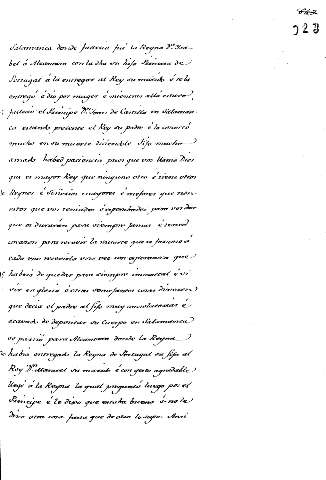 923
Salamanca donde
fué la Reyna Dª Isa-
bel á Alcantara con la dha su hija Princesa de
Portugal á la entregar al Rey su marido é se la
entregó é dió por muger é mientras allá estuvo
falleció el Principe Dn Juan de Castilla en Salaman-
ca estando presente el Rey su padre é la
mucho en su muerte diciendole fijo mucho
amado habed paciencia pues que vos llama Dios
que es mayor Rey que ninguno otro é tiene otros
Reynos é Señorios mayores é mejores que non
estos que vos
para vos dar
que os durarán para siempre jamas é
corazon para recivir la muerte que es forzoso á
cada uno recivirla una vez con esperanza que
habeis de quedar para siempre inmortal é vi-
vir en gloria é otras
cosas
que decia el padre al fijo muy
é
acavado de depositar su Cuerpo en Salamanca
se partió para Alcantara donde la Reyna
habia entregado la Reyna de Portugal su fija al
Rey Dn Manuel su marido é con gesto agradable
llegó á la Reyna la qual preguntó luego por el
Principe é le dixo que estaba bueno é no le
dixo otra cosa fasta que de otro lo supo. Assi